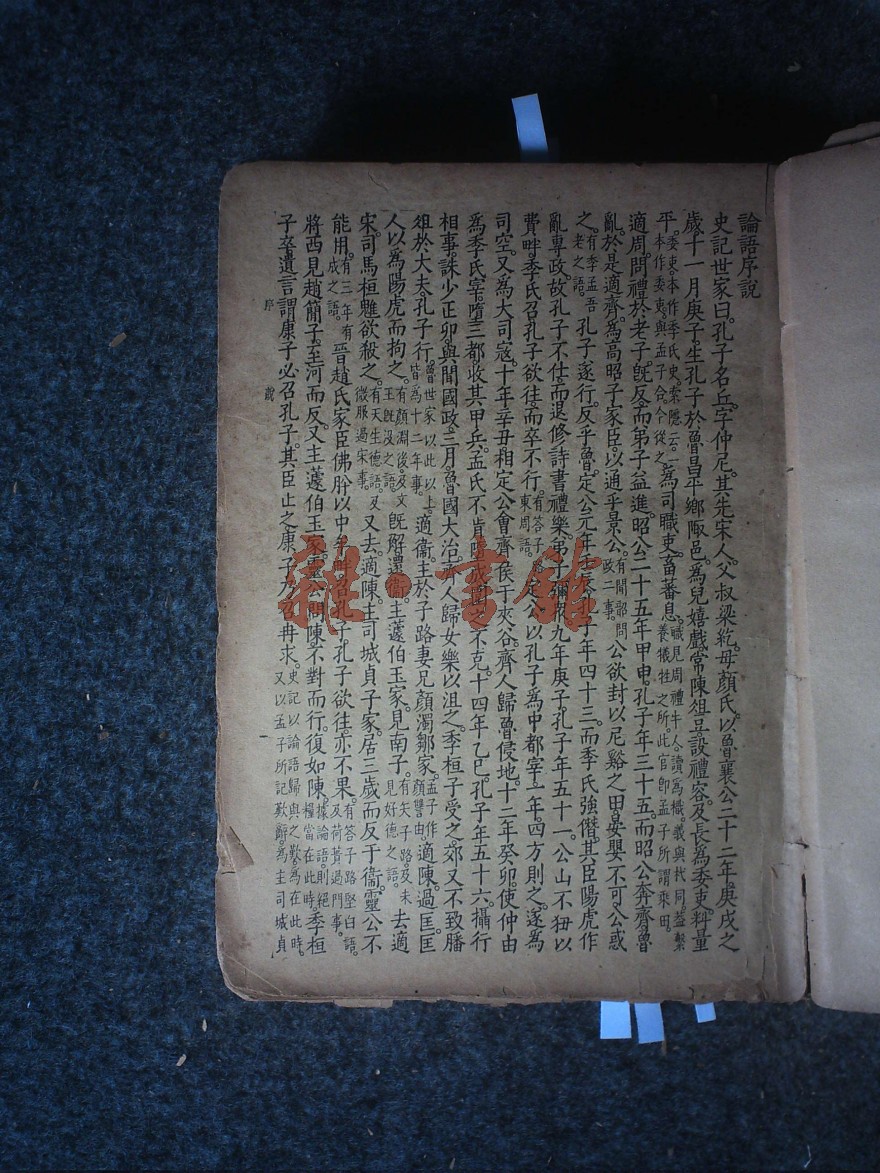 論語序說
史記世家曰。孔子名丘。字仲尼。其先宋人。父叔梁紇。母顏氏。以魯襄公二十二年。庚戌之
歲。十一月庚子。生孔子於魯昌平鄉陬邑。為兒嬉戲。常陳俎豆。設禮容。及長。為委吏。料量
平。委吏。本作季氏史。索隱云。一本作委吏。與孟子合。今從之。為司職吏。畜蕃息。職見周禮牛人。讀為樴。義與杙同。蓋繫養犧牲之所。此官即孟子所謂乘田。
適周。問禮於老子。旣反。而弟子益進。昭公二十五年甲申。孔子年三十五。而昭公奔齊。魯
亂。於是適齊。為高昭子家臣。以通乎景公。有聞韶問政二事。公欲封以尼谿之田。晏嬰不可。公惑
之。有季孟吾老之語。孔子遂行。反乎魯。定公元年 孔子年四十三。而季氏強僭。其臣陽虎作
亂專政。故孔子不仕。而退修詩書禮樂。弟子彌 九年庚子。孔子年五十一。公山不狃以
費畔季氏。召孔子。欲往。而卒不行。有答子 東周語。定公以孔子為中都宰。一年。四方則之。遂為
司空。又為大司寇。十年辛丑。相定公會齊侯于夾谷。齊人歸魯侵地。十二年癸卯。使仲由
為季氏宰。墮三都。收其甲兵。孟氏不肯墮成。圍之不克。十四年乙巳。孔子年五十六。攝行
相事。誅少正卯。與聞國政。三月。魯國大治。齊人歸女樂以沮之。季桓子受之。郊又不致膰
俎於大夫。孔子行。魯世家以此以上。皆為十二年事。適衞。主於子路妻兄顏濁鄒家。孟子作顏讐由。適陳。過匡。匡
人以為陽虎而拘之。有顏淵後。及文王旣沒之語。旣解。還衞。主蘧伯玉家。見南子。有矢子路。及未見好德之語。去適
宋。司馬桓魋欲殺之。有天生德語。及微服過宋事。又去。適陳。主司城貞子家。居三歲而反于衞。靈公不
能用。有三年有成之語。晉趙氏家臣佛肸以中牟畔。召孔子。孔子欲往。亦不果。有答子路堅白語。及荷蕢過門事。
將西見趙簡子。至河而反。又主蘧伯玉家。靈公問陳。不對而行。復如陳。據論語。則絕糧當在此時。季桓
子卒。遺言謂康子必召孔子。其臣止之。康子乃召冉求。史記以論語歸與之歎。為在此時。又以孟子所記歎辭。為主司城貞
序說
一
雜·書館